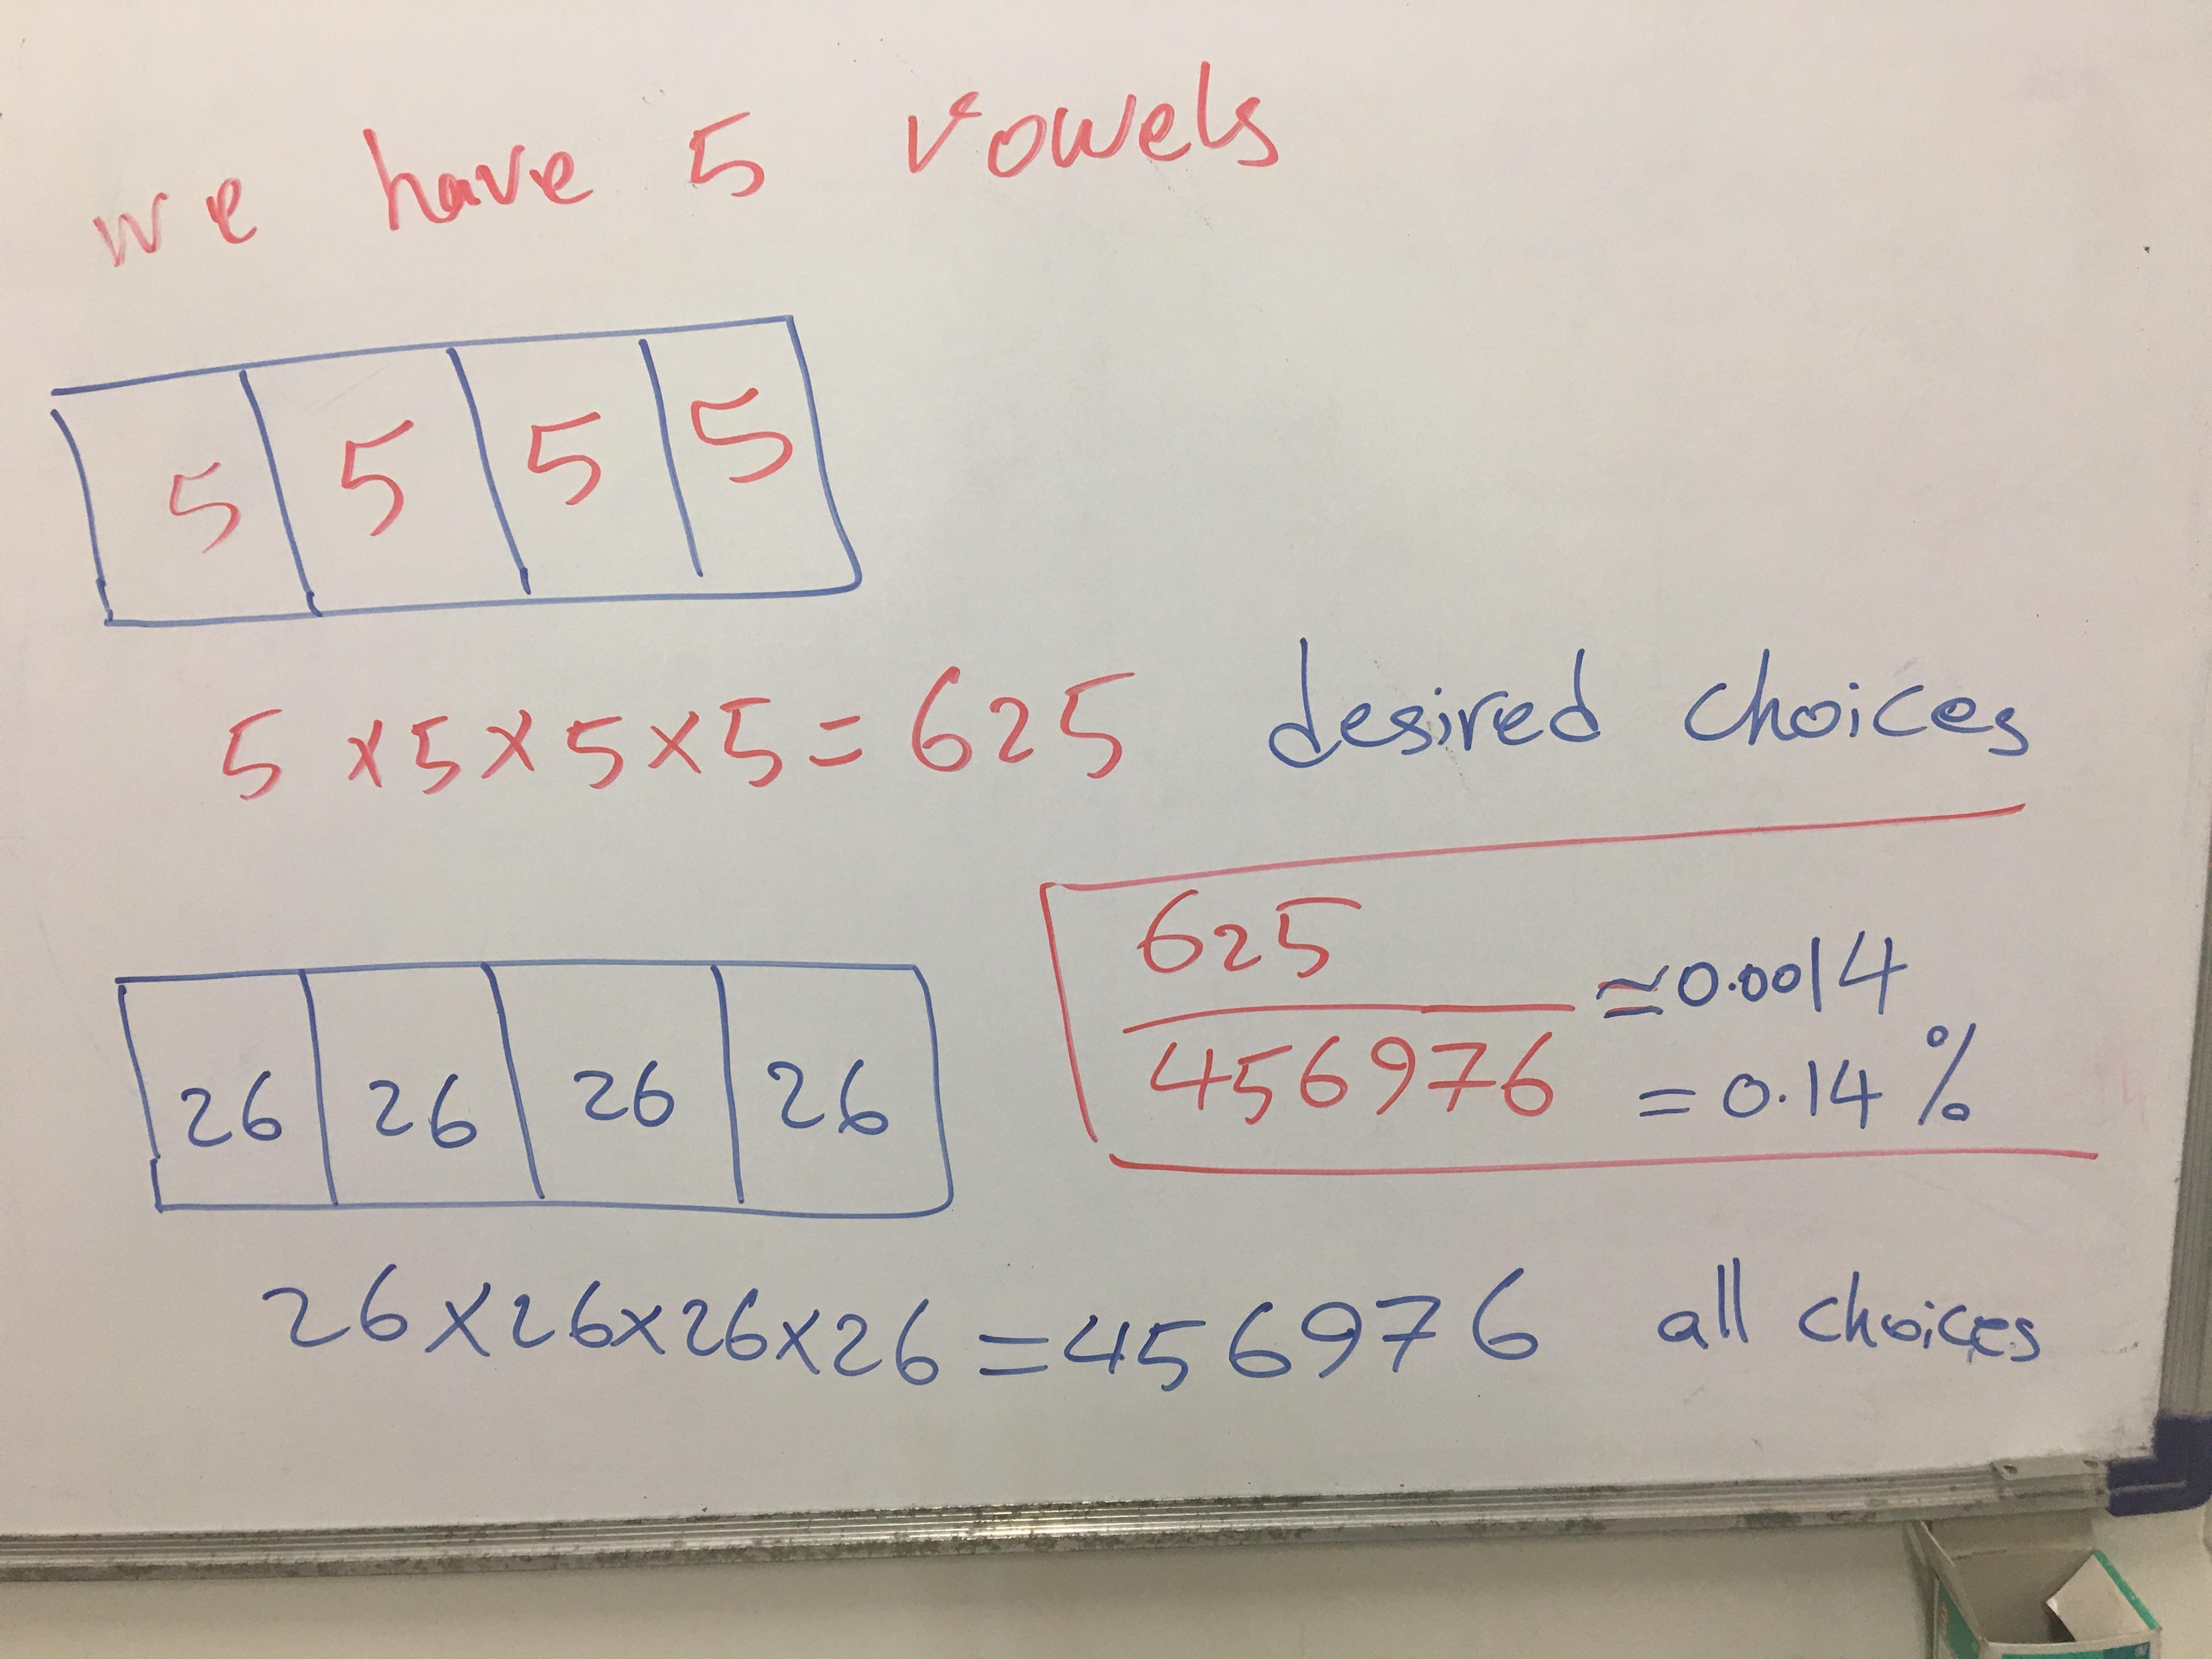 we have 5 vowels
5 5 5 5
5 × 5 × 5 × 5 = 625 desired choices
625
456976
≃ 0.0014
= 0.14 %
26 26 26 26
26 × 26 × 26 × 26 = 456976 all choices